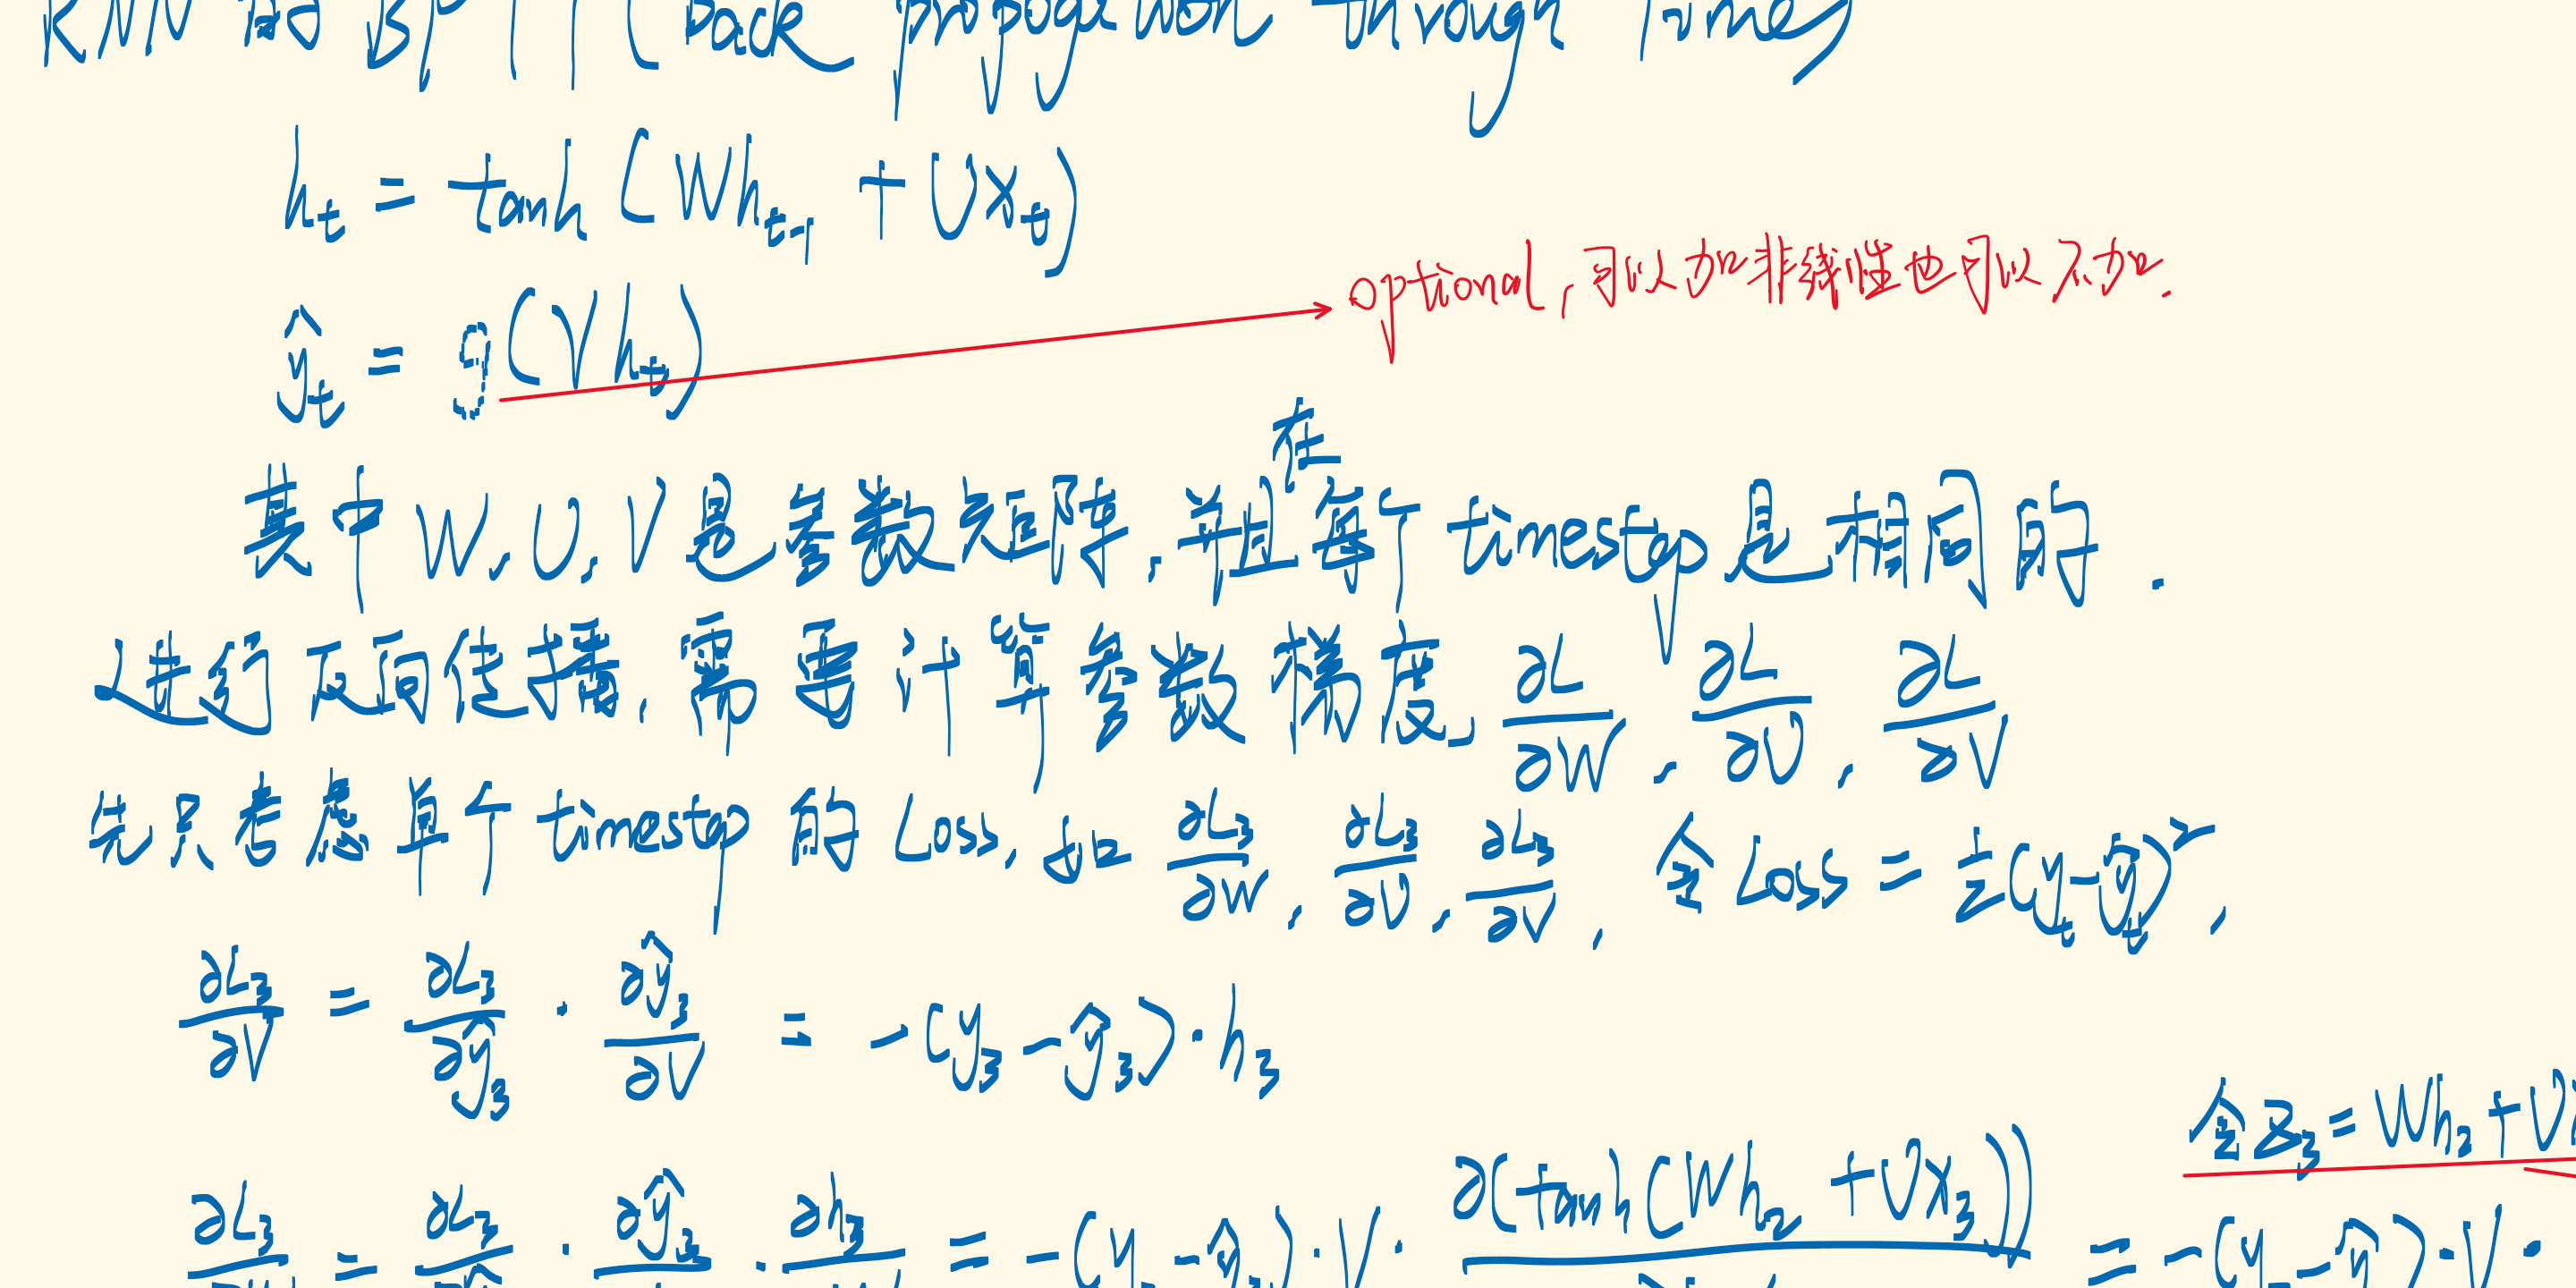 RNN 的 BPTT (Back propogation through Times)
h_t = tanh (Wh_{t-1} + Ux_t)
ŷ_t = g(Vh_t)
optional, 可以加非线性也可以不加.
其中 W, U, V 是参数矩阵, 并且在每个 timestep 是相同的.
进行反向传播, 需要计算参数梯度, ∂L/∂W, ∂L/∂U, ∂L/∂V
先只考虑单个 timestep 的 Loss, 如 ∂L₃/∂W, ∂L₃/∂U, ∂L₃/∂V, 令 Loss = ½(y_t - ŷ_t)²,
∂L₃/∂V = ∂L₃/∂ŷ₃ · ∂ŷ₃/∂V = -(y₃ - ŷ₃)·h₃
令 z₃ = Wh₂ + U
∂L₃ = ∂L₃ · ∂ŷ₃ · ∂h₃ = -(y₃ - ŷ₃)·V· ∂(tanh(Wh₂ + Ux₃)) = -(y - ŷ)·V·